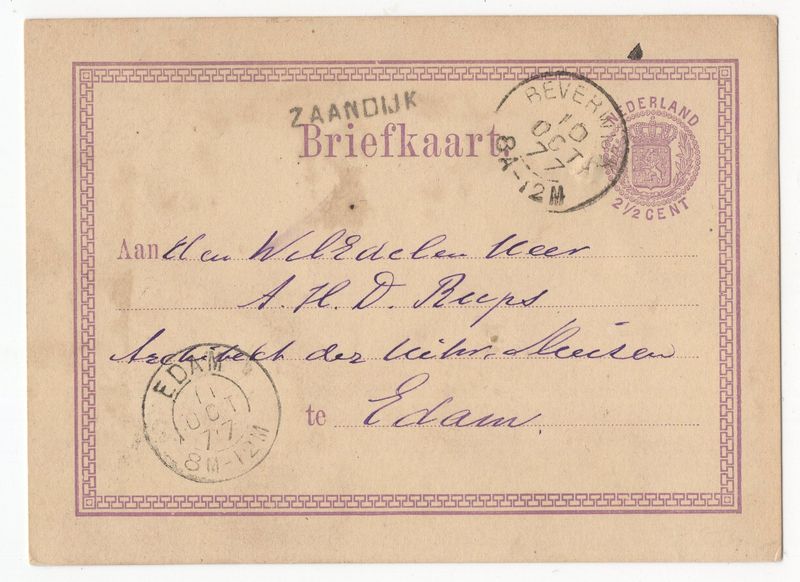 ZAANDIJK
Briefkaart.
BEVERWIJK
10
OCT
77
8A-12M
NEDERLAND
2½ CENT
Aan den WelEdelen Heer
A. H. D. Rups
Architect der
te Edam.
EDAM
11
OCT
77
8M-12M